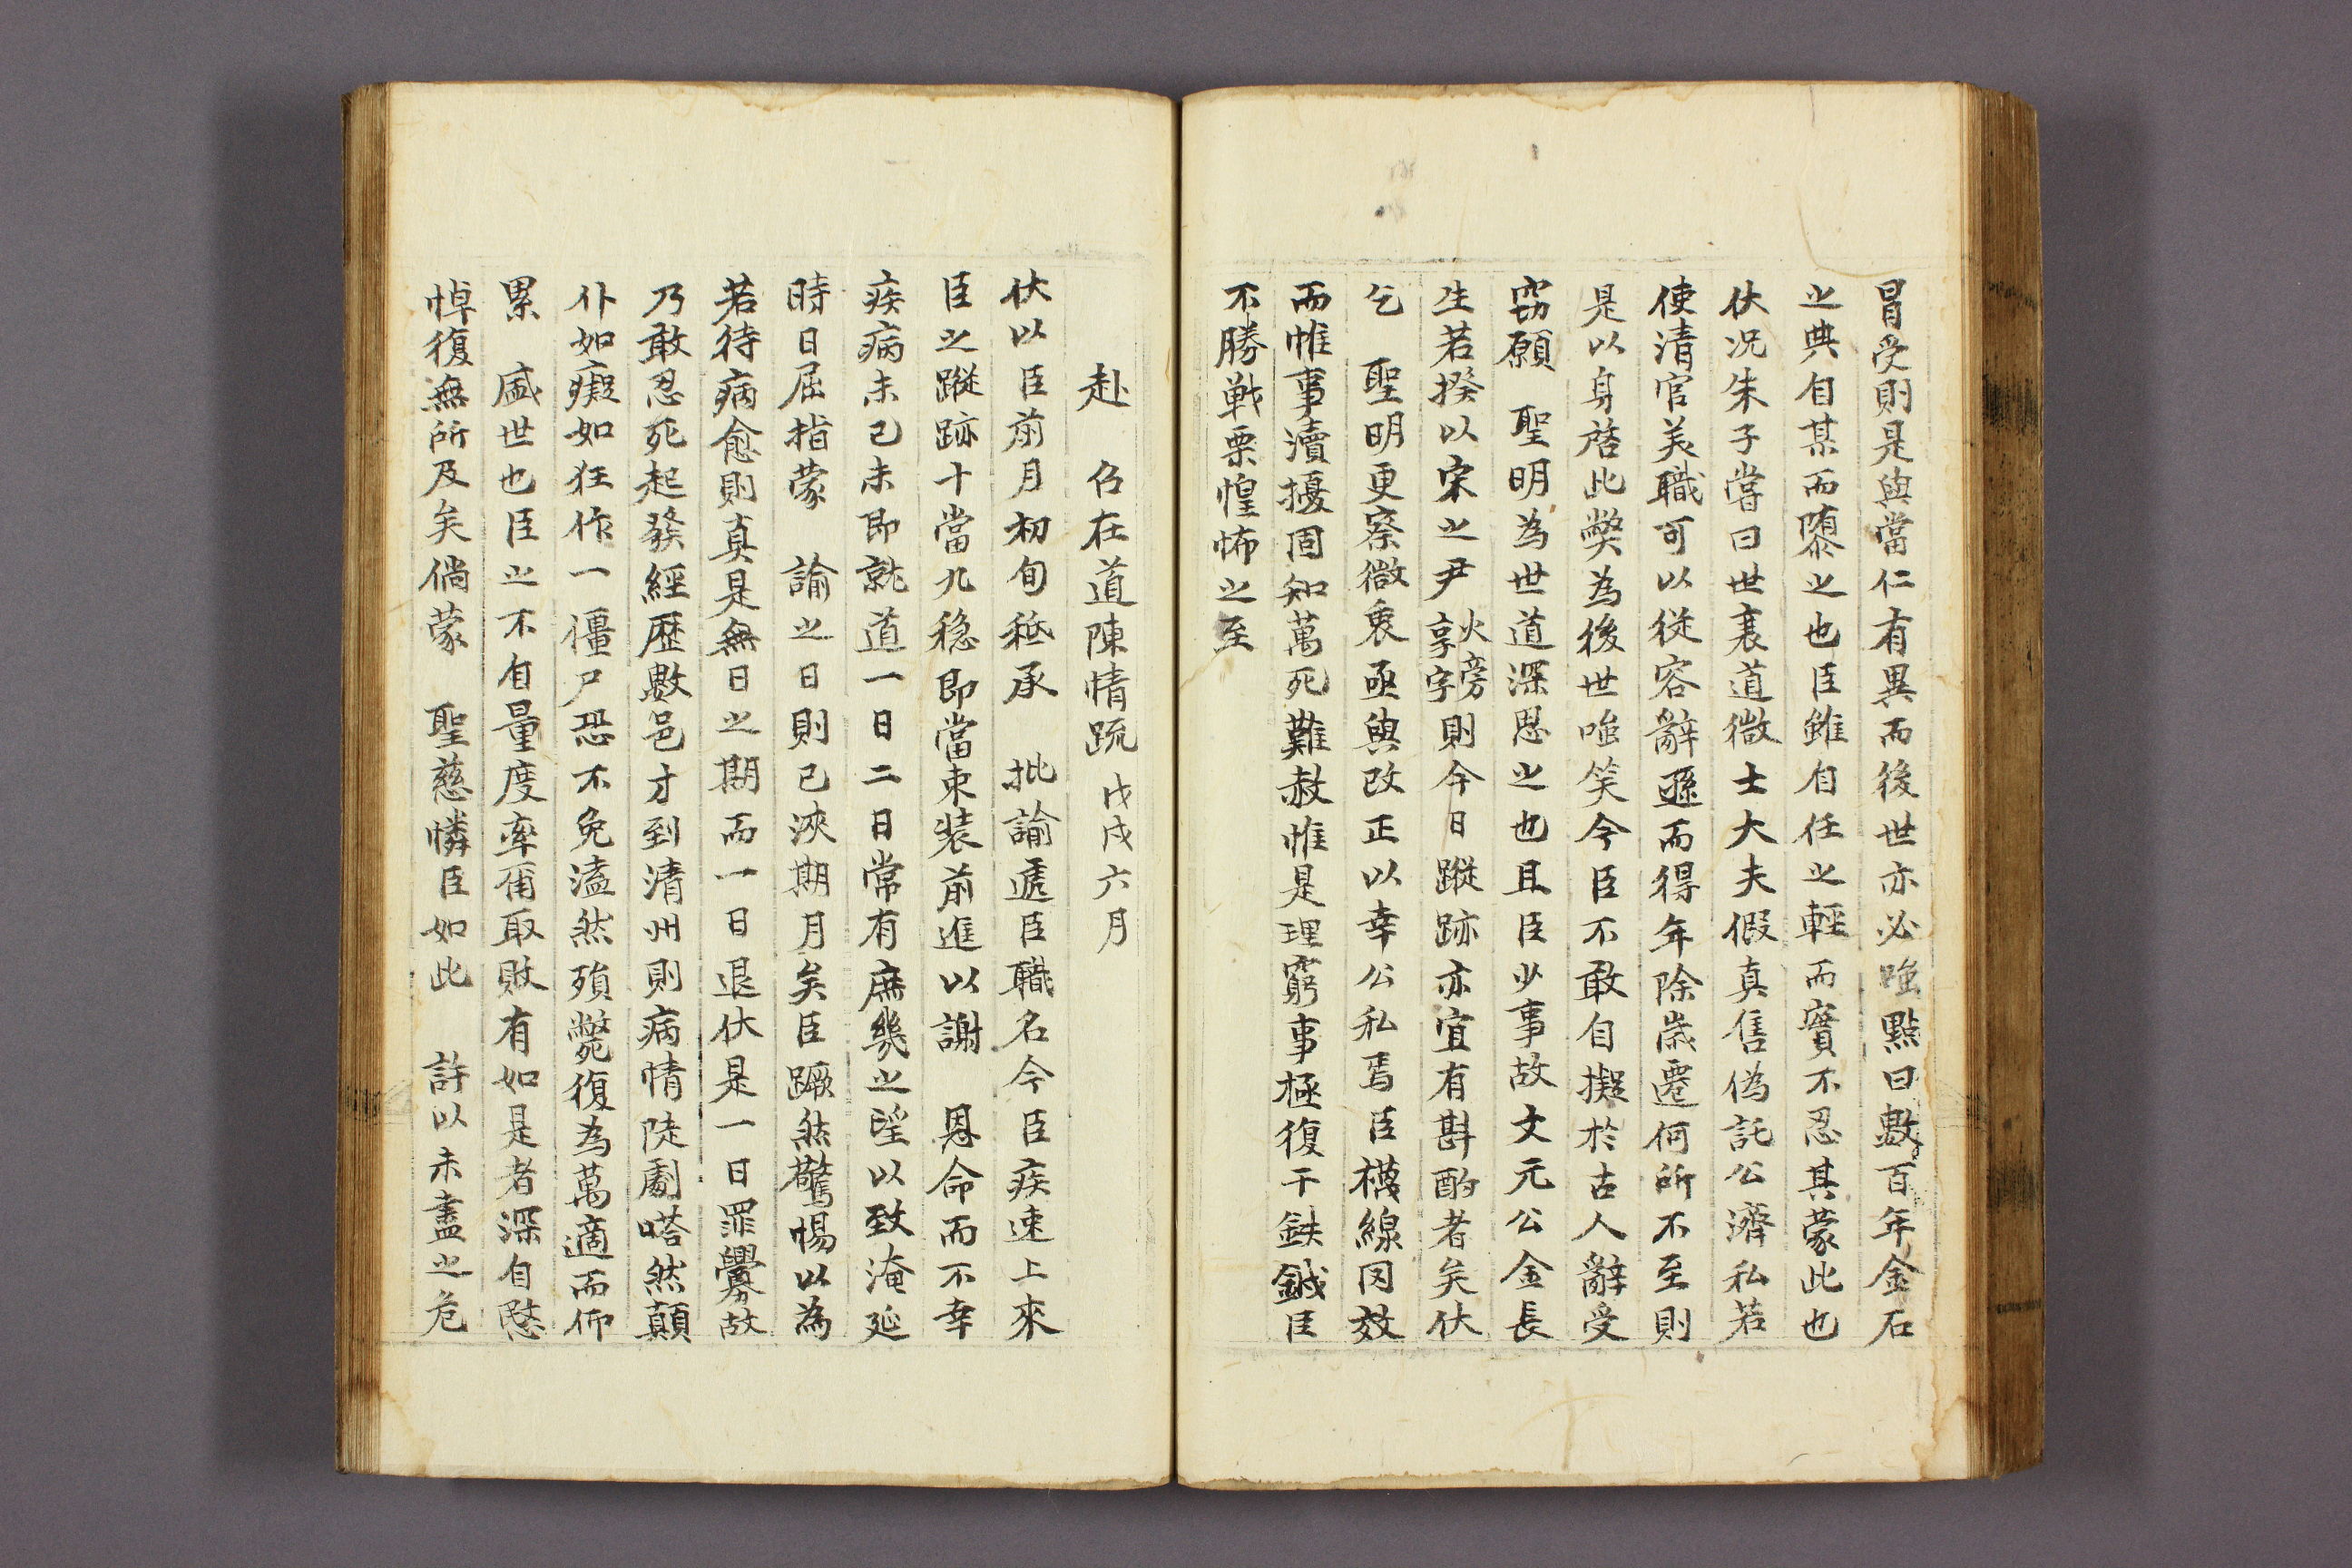 冒受則是與當仁有異而後世亦必嗤點曰數百年金石
之典自某而隳之也臣雖自任之輕而實不忍其蒙此也
伏況朱子嘗曰世衰道微士大夫假真售偽託公濟私若
使清官美職可以從容辭遜而得年除歲遷何所不至則
是以身啓此弊為後世嗤笑今臣不敢自擬於古人辭受
窃願 聖明為世道深思之也且臣少事故文元公金長
生若揆以宋之尹火旁享字則今日蹤跡亦宜有斟酌者矣伏
乞 聖明更察微衷亟與改正以幸公私焉臣襪線罔效
而惟事瀆擾固知萬死難赦惟是理窮事極復干鈇鉞臣
不勝戦栗惶怖之至
赴 召在道陳情疏戊戌六月
伏以臣前月初旬祗承 批諭遞臣職名今臣疾速上來
臣之蹤跡十當九穩即當束装前進以謝 恩命而不幸
疾病未已未即就道一日二日常有庶幾之望以致淹延
時日屈指蒙 諭之日則已浹期月矣臣蹶然驚惕以為
若待病愈則真是無日之期而一日退伏是一日罪釁故
乃敢忍死起發經歷數邑才到清州則病情陡劇嗒然顛
仆如癡如狂作一僵尸恐不免溘然殞斃復為萬適而仰
累 盛世也臣之不自量度率爾取敗有如是者深自慙
悼復無所及矣倘蒙 聖慈憐臣如此 許以未盡之危